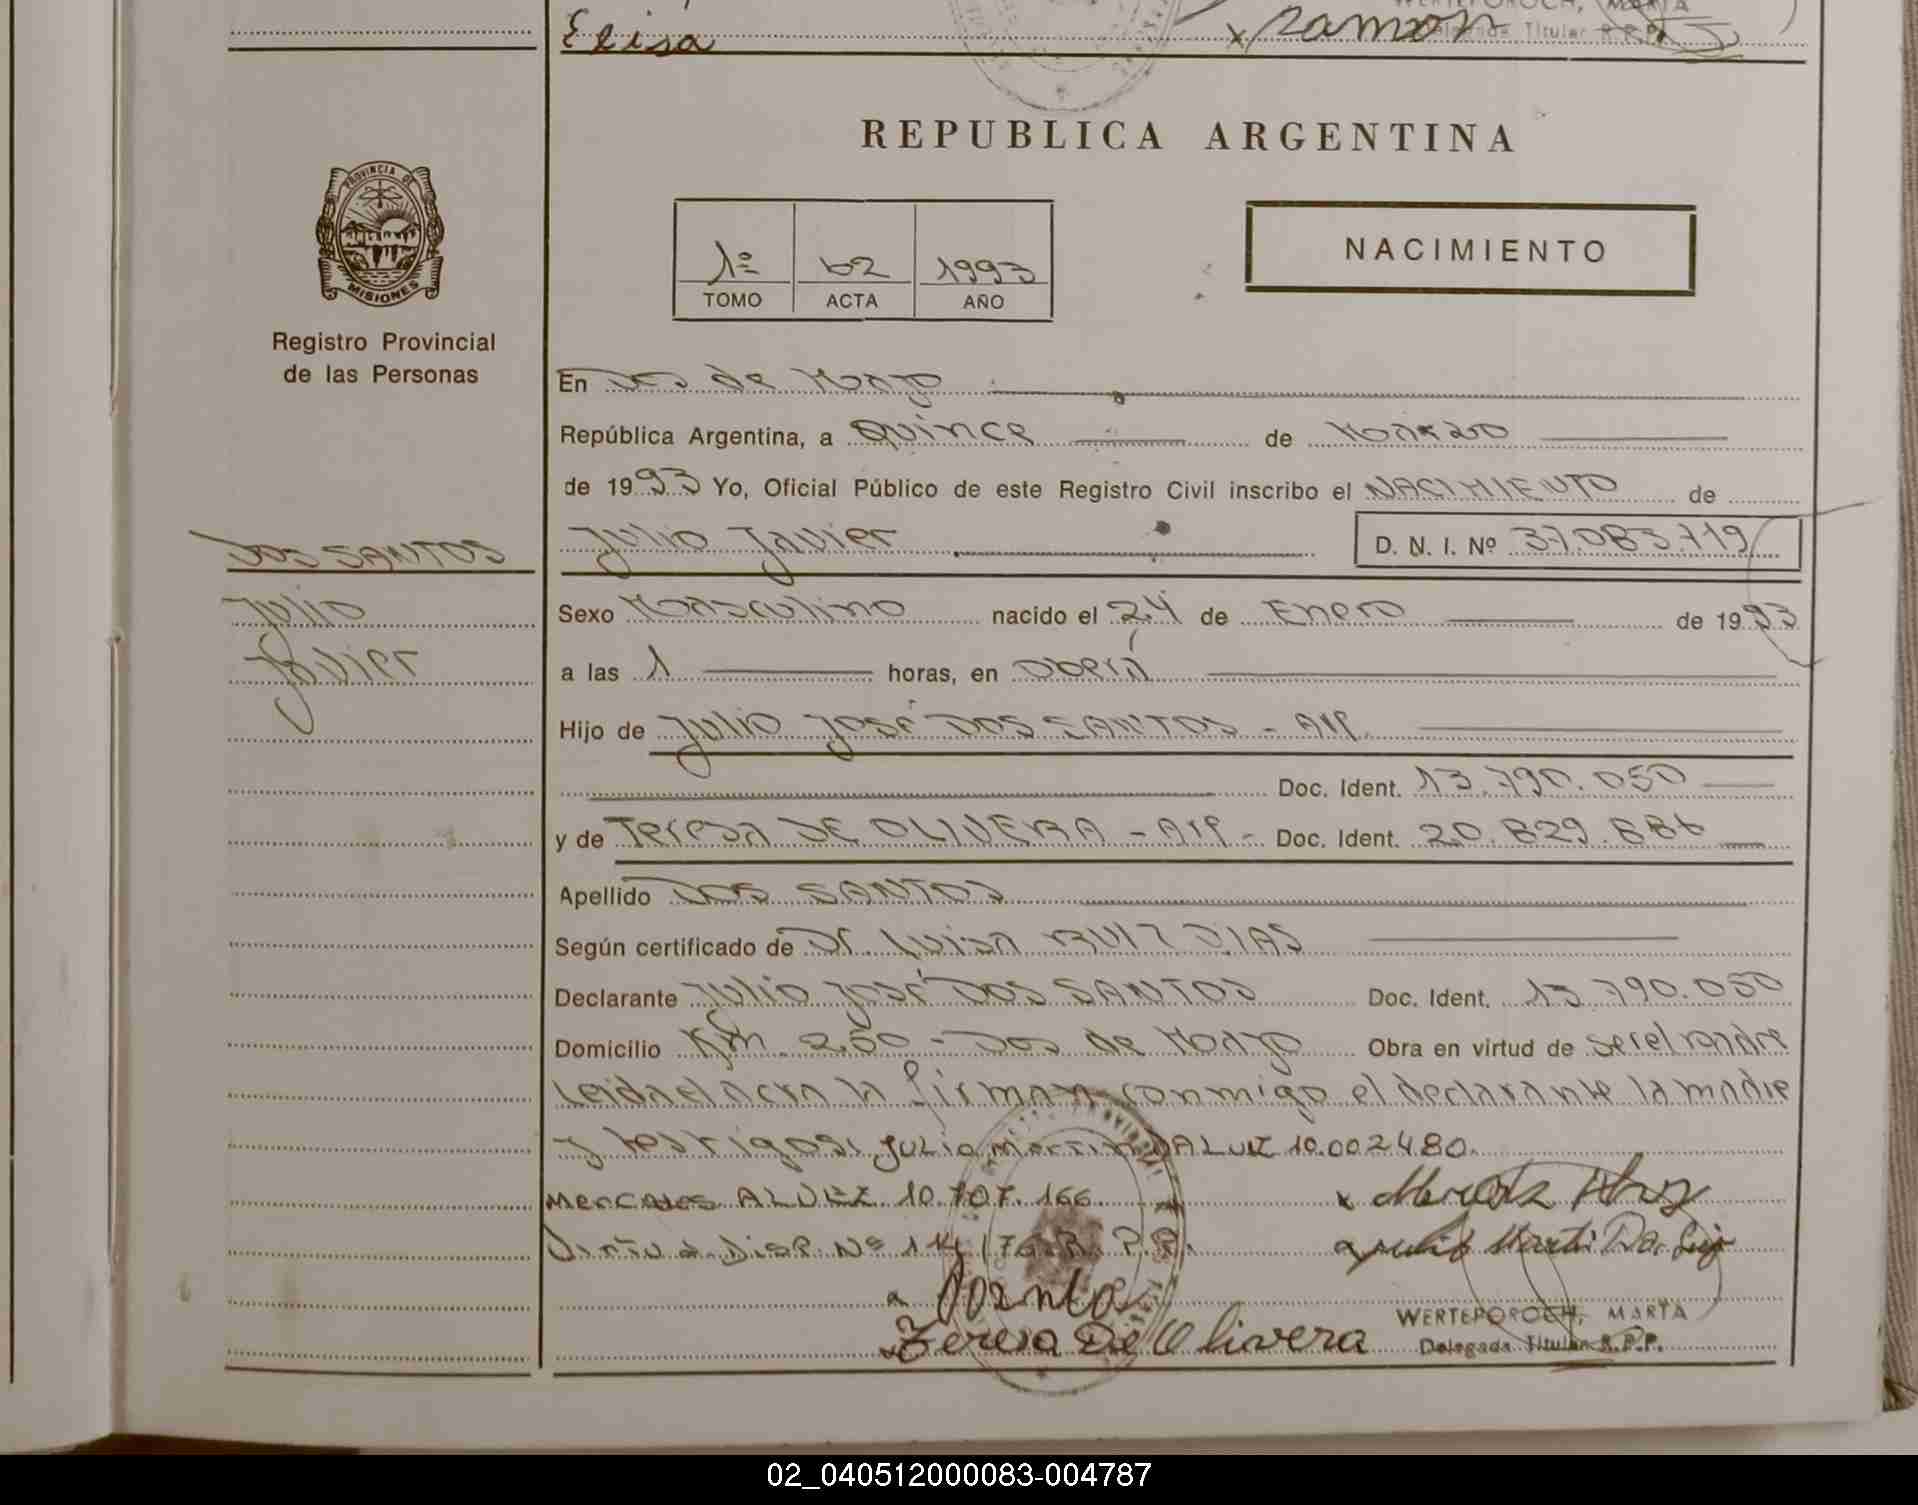 Elisa
x Ramon
WERTEPOROCH, MARTA
Delegada Titular R.P.P.
PROVINCIA DE
MISIONES
Registro Provincial
de las Personas
DOS SANTOS
Julio
Javier
REPUBLICA ARGENTINA
1º 62 1993
TOMO ACTA AÑO
NACIMIENTO
En Dos de Mayo
República Argentina, a Quince de Marzo
de 1993 Yo, Oficial Público de este Registro Civil inscribo el NACIMIENTO de
Julio Javier D. N. I. Nº 37.083.719
Sexo Masculino nacido el 24 de Enero de 1993
a las 1 horas, en Oberá
Hijo de Julio José DOS SANTOS - Arg.
Doc. Ident. 13.790.050
y de Teresa DE OLIVERA - Arg - Doc. Ident. 20.829.886
Apellido DOS SANTOS
Según certificado de Dr. Luisa RUIZ DIAS
Declarante Julio José DOS SANTOS Doc. Ident. 13.790.050
Domicilio Km 260 - Dos de Mayo Obra en virtud de ser el padre
Leida el acta la firman conmigo el declarante la madre
y testigos: Julio Martin DALUZ 10.002480.
Mercedes ALVEZ 10.707.166.
Disp. Nº 14/76 R.P.P.
x
x Julio Marti Da Luz
x
x Teresa De Olivera
WERTEPOROCH, MARTA
Delegada Titular R.P.P.
02_040512000083-004787